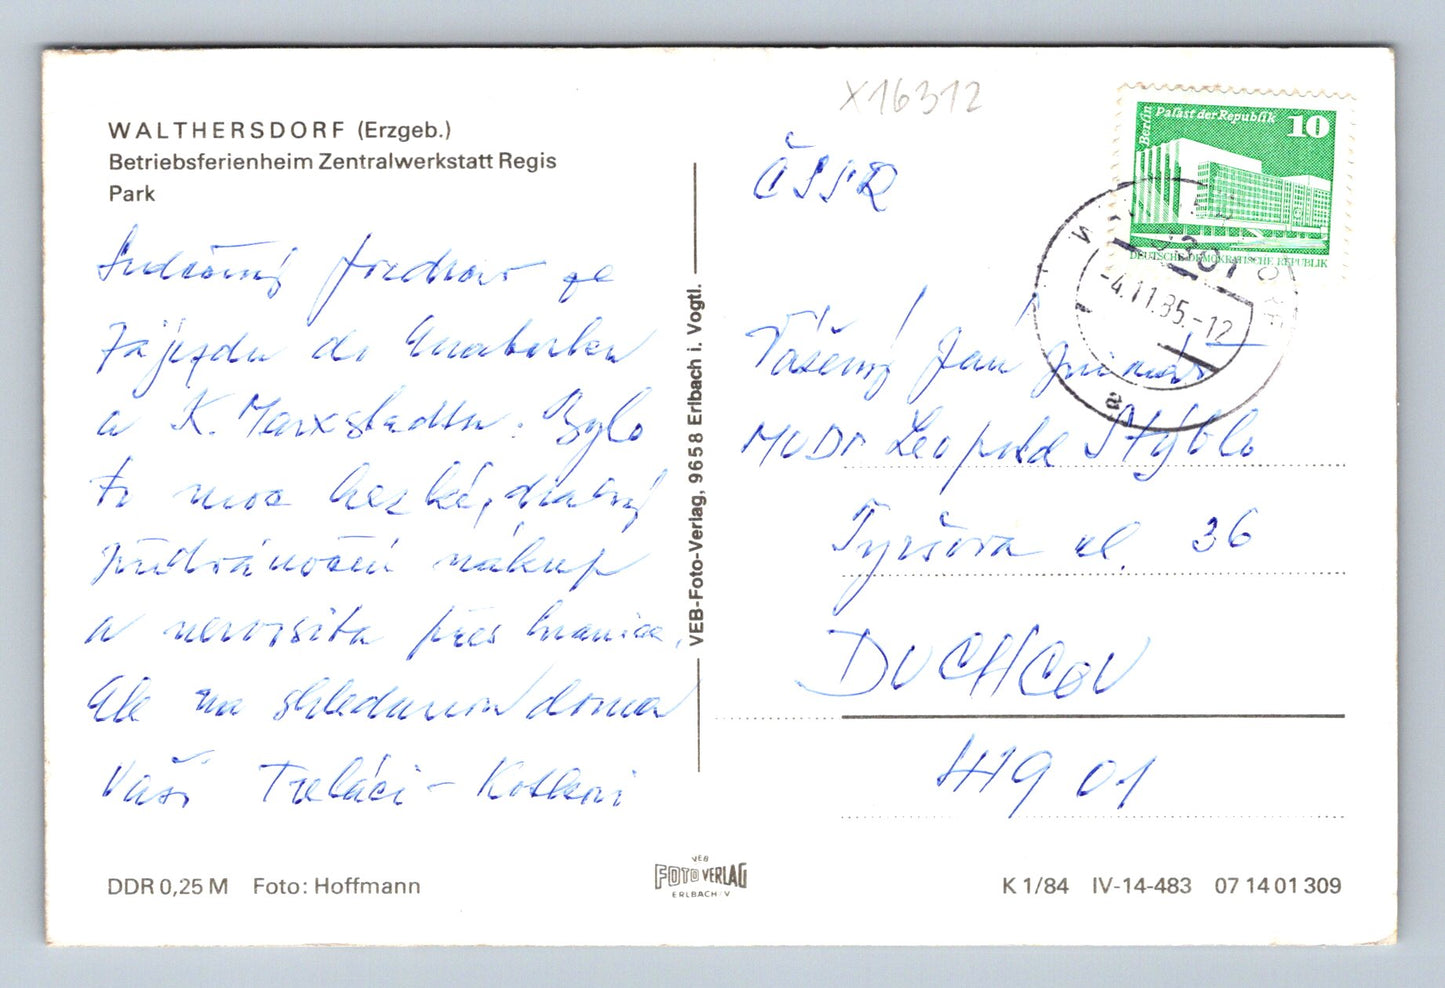 WALTHERSDORF (Erzgeb.)
Betriebsferienheim Zentralwerkstatt Regis
Park
Srdečný pozdrav ze
zájezdu do Annaberku
a K. Marxstadtu. Bylo
to moc hezké, drobný
předvánoční nákup
a nervosita přes hranice.
Ale na shledanou doma
Vaši Treláci - Kotkovi
VEB-Foto-Verlag, 9658 Erlbach i. Vogtl.
X16312
ČSSR
Berlin Palast der Republik 10
DEUTSCHE DEMOKRATISCHE REPUBLIK
9301
-4.11.85.-12
a
Vážený pan primář
MUDr Leopold Stýblo
Tyršova ul. 36
DUCHCOV
419 01
DDR 0,25 M Foto: Hoffmann
VEB
FOTO VERLAG
ERLBACH/V
K 1/84 IV-14-483 07 14 01 309